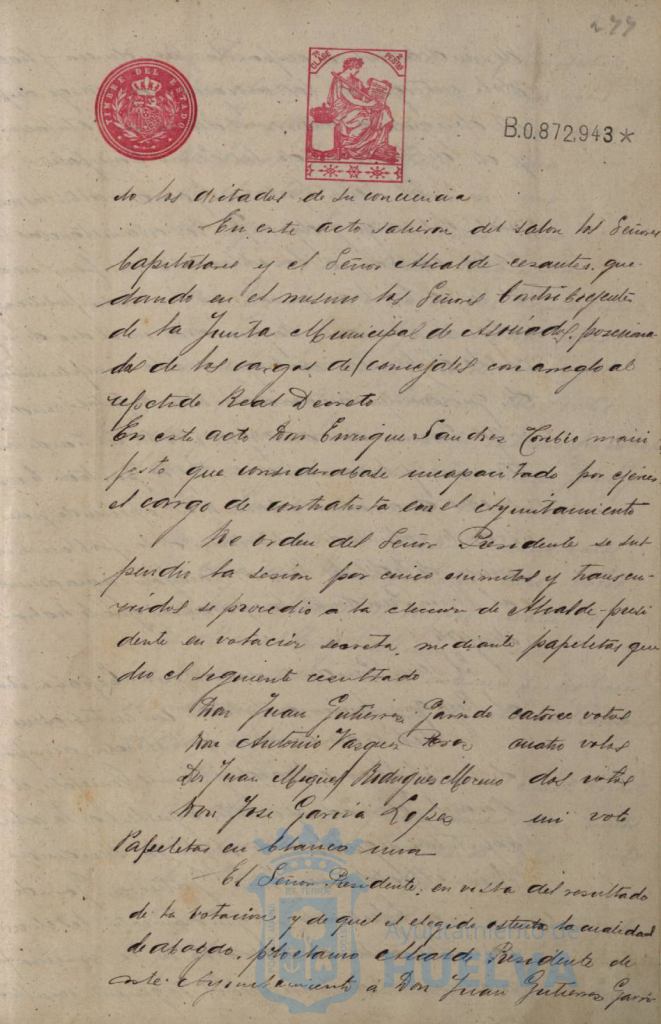 277
TIMBRE DEL ESTADO
7ª CLASE 2 PESETAS
B.0.872,943 *
do los dictados de su conciencia
En este acto salieron del salon los Señores
Capitulares y el Señor Alcalde cesantes, que-
dando en el mismo los Señores Contribuyentes
de la Junta Municipal de Asociados, posesiona-
dos de los cargos de concejales con arreglo al
referido Real Decreto
En este acto Don Enrique Sanchez Toribio mani
festo que considerabase incapacitado por ejercer
el cargo de contratista con el Ayuntamiento
De orden del Señor Presidente se sus
pendio la sesion por cinco minutos y transcu-
rridos se procedio a la eleccion de Alcalde-presi
dente en votación secreta, mediante papeletas que
dio el seguiente resultado
Don Juan Gutierrez Garrido catorce votos
Don Antonio Vasquez cuatro votos
Don Juan Miguel Rodriguez Moreno dos votos
Don Jose Garcia Lopez un voto
Papeletas en blanco una
El Señor Presidente, en vista del resultado
de la votacion y de que el elegido ostenta la cualidad
de abogado, proclamo Alcalde Presidente de
este Ayuntamiento a Don Juan Gutierrez Garri
Ayuntamiento de
HUELVA